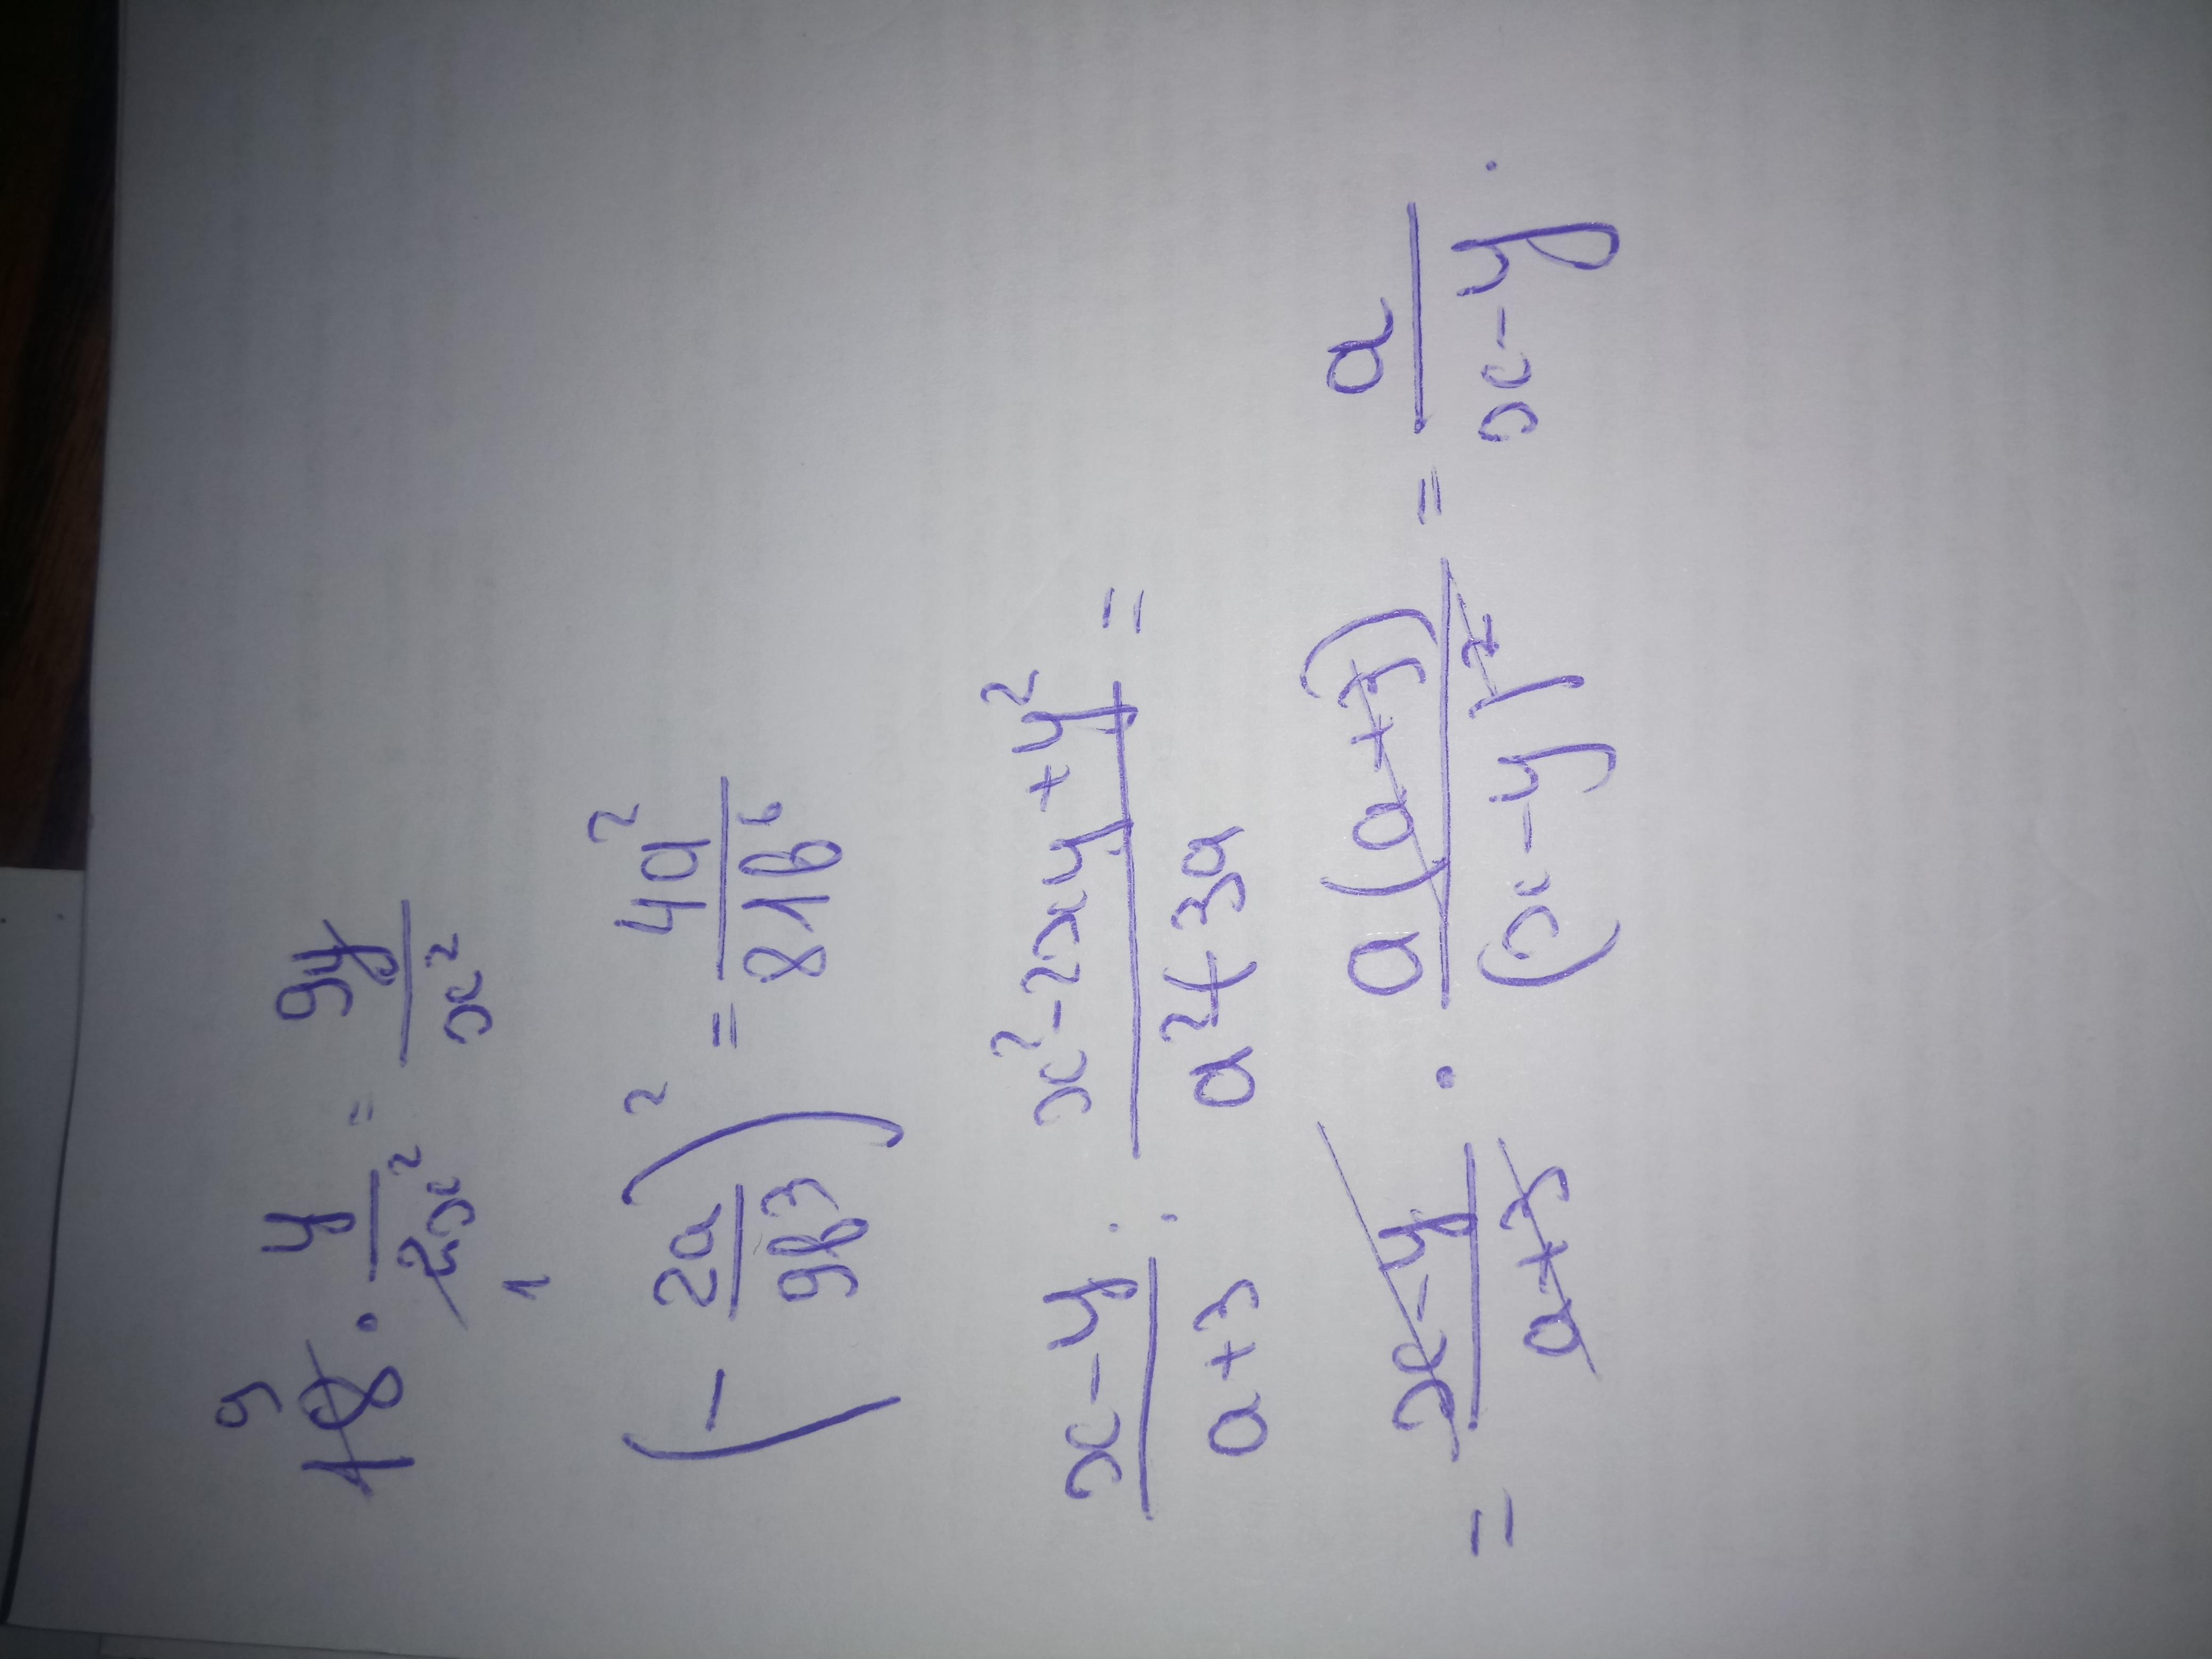 18 · y/2x² = 9y/x²
9
1
(- 2a/9b³)² = 4a²/81b⁶
x-y/a+3 : x²-2xy+y²/a²+3a =
= x-y/a+3 · a(a+3)/(x-y)² = a/x-y .